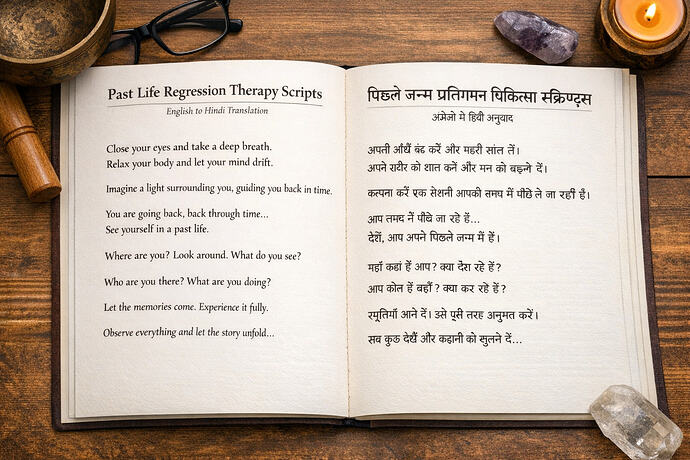 Past Life Regression Therapy Scripts
English to Hindi Translation
Close your eyes and take a deep breath.
Relax your body and let your mind drift.
Imagine a light surrounding you, guiding you back in time.
You are going back, back through time...
See yourself in a past life.
Where are you? Look around. What do you see?
Who are you there? What are you doing?
Let the memories come. Experience it fully.
Observe everything and let the story unfold...
पिछले जन्म प्रतिगमन
में अनुवाद
अपती करें और तें।
अपने को शात कनें और मन को दें।
कल्पना करें एक सेशनी आपकी में पीछे ले जा रहीं है।
आप नें पीछे जा रहे हैं...
देशें, आप अपने पिछले जन्म में हैं।
कहां हैं आप? क्या देश रहे हैं?
आप कोल हैं वहाँ? क्या कर रहे हैं?
आने दें। उसे तरह अनुमत करें।
सब कुछ देखें और कहानी को सुलने दें...